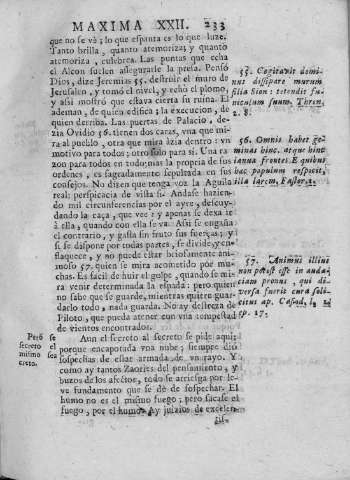 MAXIMA XXII. 233
que no se và; lo que espanta es lo que luze.
Tanto brilla, quanto atemoriza; y quanto
atemoriza, culebrea. Las puntas que echa
el Alcon suelen assegurarle la presa. Pensò
Dios, dize Jeremias 55. destruir el muro de
Jerusalen, y tomò el nivel, y echò el plomo,
y assi mostrò que estava cierta su ruina. El
ademan, de quien edifica; la execucion, de
quien derriba. Las puertas de Palacio, de-
zia Ovidio 56. tienen dos caras, vna que mi-
ra al pueblo, otra que mira àzia dentro: vn
motivo para todos; otro solo para si. Una razon
zon para todos en todo, mas la propria de sus
ordenes, es sagradamento sepultada en sus
consejos. No dizen que tenga voz la Aguila
real: perspicacia de vista si. Andase hazien-
do mil circunferencias por el ayre, descuy-
dando la caça, que vee; y apenas se dexa ir
à ella, quando con ella se và. Assi se engaña
el contrario, y gasta sin fruto sus fuerças; y
si se dispone por todas partes, se divide, y en-
flaquece, y no puede estar briosamente ani-
moso 57. quien se mira acometido por mu-
chas. Es facil de huir el golpe, quando se mi-
ra venir determinada la espada: pero quien
no sabe que se guarde, mientras quiere guar-
darlo todo, nada guarda. No ay destreza de
Piloto, que pueda atener con vna tempestad
de vientos encontrados.
Aun el secreto al secreto se pide aqui;
porque encapotada vna nube, siempre diò
sospechas de estar armada de vn rayo. Y
como ay tantos Zaories del pensamiento, y
buzos de los afectos, todo se arriesga por le-
ve fundamento que se dè de sospechar. El
humo no es el mismo fuego; pero sacase el
fuego, por el humo. Ay juizios de excelen-
55. Cogitavit domi-
nus dissipare murum
filia Sion: tetendit fu-
niculum suum, Thren.
2. 8.
56. Omnis habet ge-
minas hinc, atque hinc
ianua frontes E quibus
hac populum respicit,
illa larem. Fastor. 1.
57. Animus illius
non potest esse in auda-
ciam pronus, qui di-
versa fuerit cura soli-
citus ap. Casiod. l.
ep. 17.
Pero se
secreto el
mismo se-
creto.